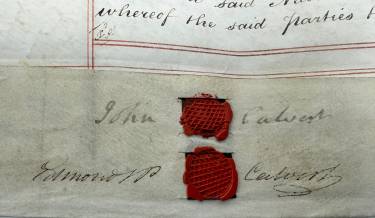 said
whereof the said parties
John Calvert
Edmond Calvert